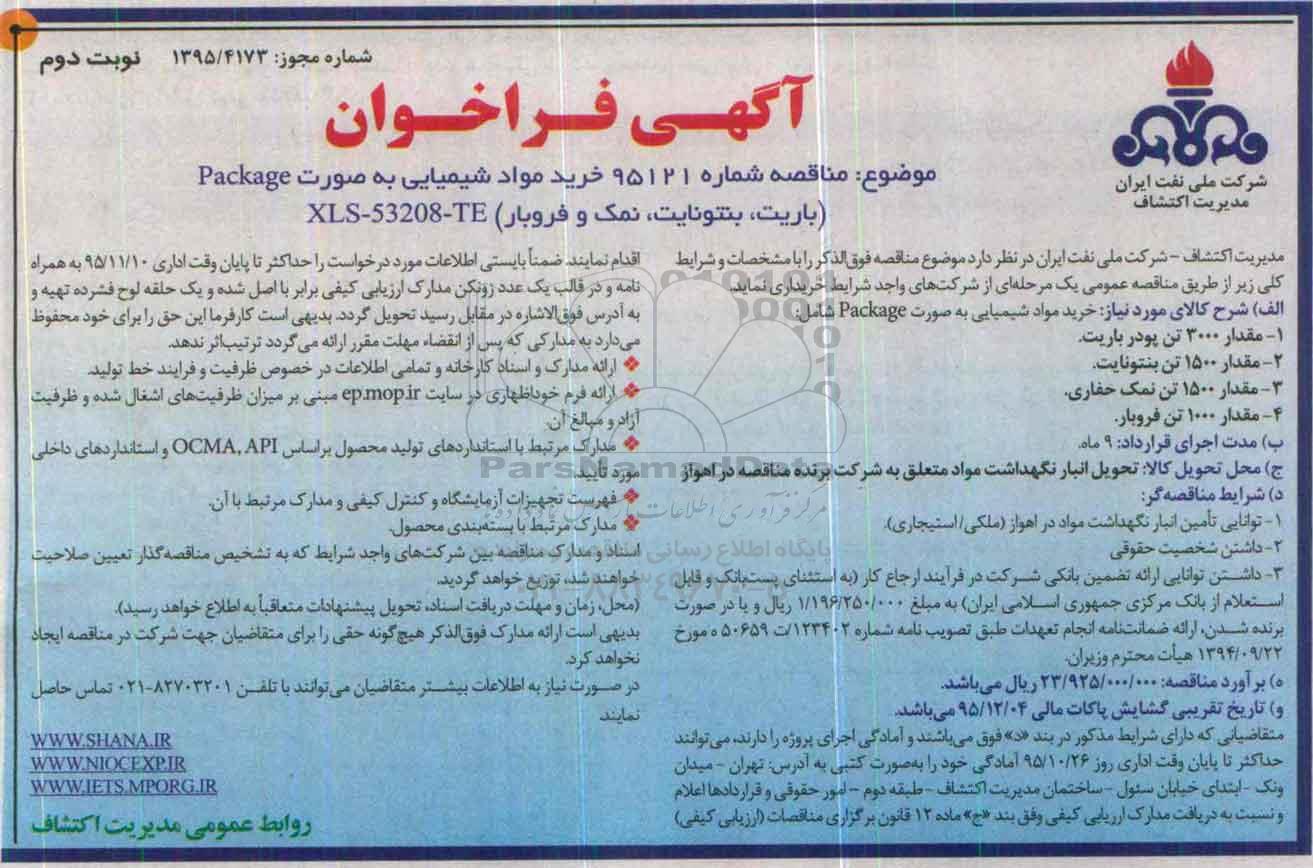 شماره مجوز: ۱۳۹۵/۴۱۷۳ نوبت دوم
آگهی فراخوان
شرکت ملی نفت ایران
مدیریت اکتشاف
موضوع: مناقصه شماره ۹۵۱۲۱ خرید مواد شیمیایی به صورت Package
(باریت، بنتونایت، نمک و فروبار) XLS-53208-TE
مدیریت اکتشاف – شرکت ملی نفت ایران در نظر دارد موضوع مناقصه فوق‌الذکر را با مشخصات و شرایط
کلی زیر از طریق مناقصه عمومی یک مرحله‌ای از شرکت‌های واجد شرایط خریداری نماید.
الف) شرح کالای مورد نیاز: خرید مواد شیمیایی به صورت Package شامل:
۱- مقدار ۳۰۰۰ تن پودر باریت.
۲- مقدار ۱۵۰۰ تن بنتونایت.
۳- مقدار ۱۵۰۰ تن نمک حفاری.
۴- مقدار ۱۰۰۰ تن فروبار.
ب) مدت اجرای قرارداد: ۹ ماه.
ج) محل تحویل کالا: تحویل انبار نگهداشت مواد متعلق به شرکت برنده مناقصه در اهواز
د) شرایط مناقصه‌گر:
۱- توانایی تأمین انبار نگهداشت مواد در اهواز (ملکی/ استیجاری).
۲- داشتن شخصیت حقوقی
۳- داشتن توانایی ارائه تضمین بانکی شرکت در فرآیند ارجاع کار (به استثنای پست‌بانک و قابل
استعلام از بانک مرکزی جمهوری اسلامی ایران) به مبلغ ۱/۱۹۶/۲۵۰/۰۰۰ ریال و یا در صورت
برنده شدن، ارائه ضمانت‌نامه انجام تعهدات طبق تصویب نامه شماره ۱۲۳۴۰۲/ت ۵۰۶۵۹ ه مورخ
۱۳۹۴/۰۹/۲۲ هیأت محترم وزیران.
ه) برآورد مناقصه: ۲۳/۹۲۵/۰۰۰/۰۰۰ ریال می‌باشد.
و) تاریخ تقریبی گشایش پاکات مالی ۹۵/۱۲/۰۴ می‌باشد.
متقاضیانی که دارای شرایط مذکور در بند «د» فوق می‌باشند و آمادگی اجرای پروژه را دارند، می‌توانند
حداکثر تا پایان وقت اداری روز ۹۵/۱۰/۲۶ آمادگی خود را به‌صورت کتبی به آدرس: تهران – میدان
ونک – ابتدای خیابان سئول – ساختمان مدیریت اکتشاف – طبقه دوم – امور حقوقی و قراردادها اعلام
و نسبت به دریافت مدارک ارزیابی کیفی وفق بند «ج» ماده ۱۲ قانون برگزاری مناقصات (ارزیابی کیفی)
اقدام نمایند. ضمناً بایستی اطلاعات مورد درخواست را حداکثر تا پایان وقت اداری ۹۵/۱۱/۱۰ به همراه
نامه و در قالب یک عدد زونکن مدارک ارزیابی کیفی برابر با اصل شده و یک حلقه لوح فشرده تهیه و
به آدرس فوق‌الاشاره در مقابل رسید تحویل گردد. بدیهی است کارفرما این حق را برای خود محفوظ
می‌دارد به مدارکی که پس از انقضاء مهلت مقرر ارائه می‌گردد ترتیب‌اثر ندهد.
❖ ارائه مدارک و اسناد کارخانه و تمامی اطلاعات در خصوص ظرفیت و فرایند خط تولید.
❖ ارائه فرم خوداظهاری در سایت ep.mop.ir مبنی بر میزان ظرفیت‌های اشغال شده و ظرفیت
آزاد و مبالغ آن.
❖ مدارک مرتبط با استانداردهای تولید محصول براساس OCMA, API و استانداردهای داخلی
مورد تأیید.
❖ فهرست تجهیزات آزمایشگاه و کنترل کیفی و مدارک مرتبط با آن.
❖ مدارک مرتبط با بسته‌بندی محصول.
اسناد و مدارک مناقصه بین شرکت‌های واجد شرایط که به تشخیص مناقصه‌گذار تعیین صلاحیت
خواهند شد، توزیع خواهد گردید.
(محل، زمان و مهلت دریافت اسناد، تحویل پیشنهادات متعاقباً به اطلاع خواهد رسید).
بدیهی است ارائه مدارک فوق‌الذکر هیچ‌گونه حقی را برای متقاضیان جهت شرکت در مناقصه ایجاد
نخواهد کرد.
در صورت نیاز به اطلاعات بیشتر متقاضیان می‌توانند با تلفن ۸۲۷۰۳۲۰۱-۰۲۱ تماس حاصل
نمایند.
WWW.SHANA.IR
WWW.NIOCEXP.IR
WWW.IETS.MPORG.IR
روابط عمومی مدیریت اکتشاف
ParsNamadData
پایگاه اطلاع رسانی